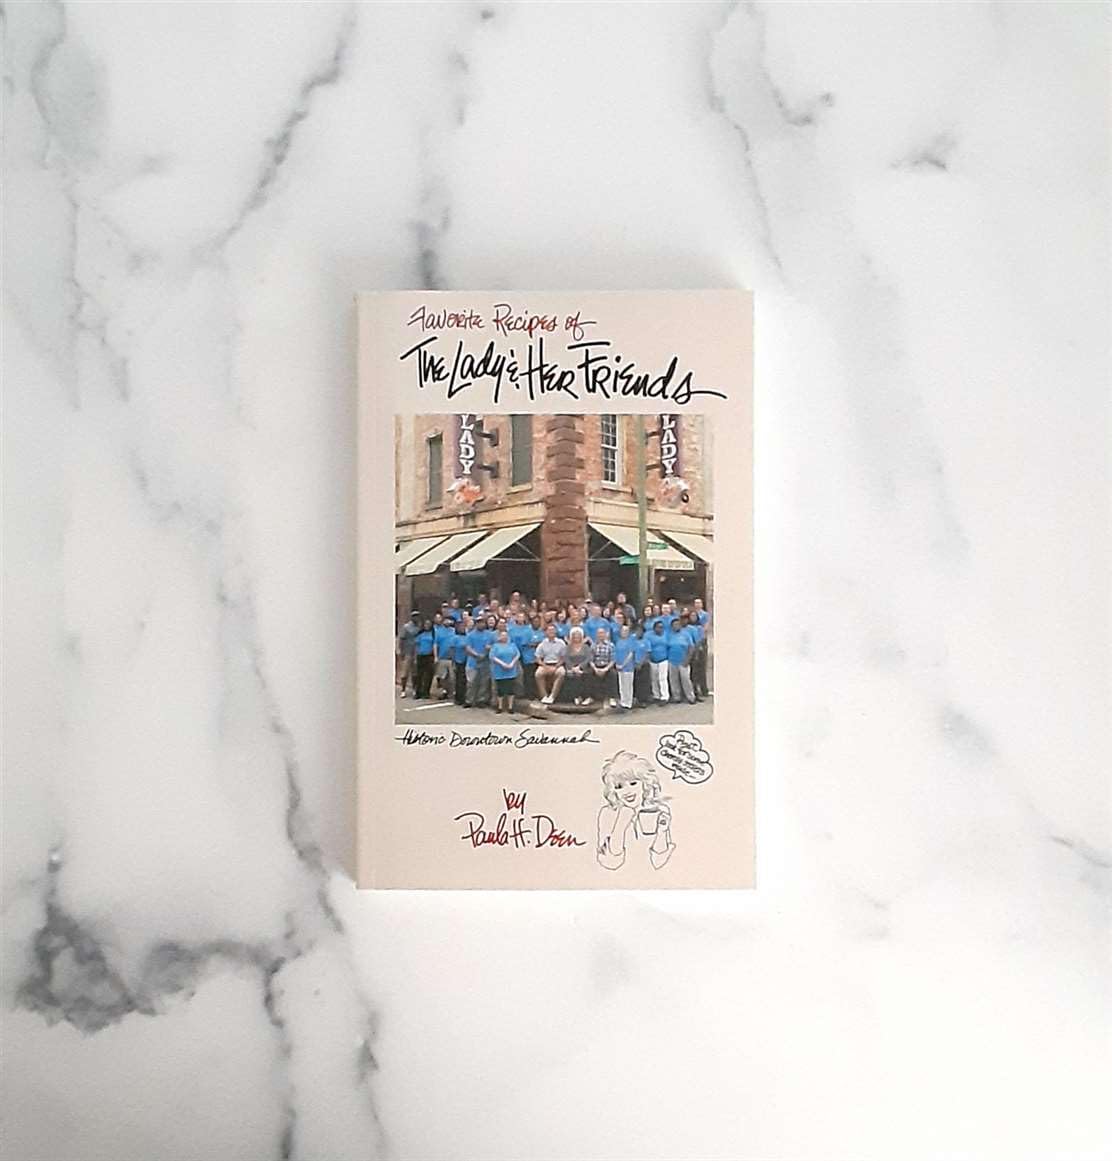 Favorite Recipes of
The Lady & Her Friends
LADY
LADY
Historic Downtown Savannah
by
Paula H. Deen